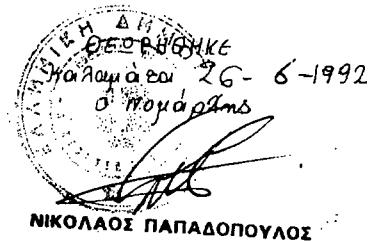 ΕΛΛΗΝΙΚΗ ΔΗΜ
ΘΕΩΡΗΘΗΚΕ
Καλαμάτα 26-6-1992
Ο Νομάρχης
ΝΙΚΟΛΑΟΣ ΠΑΠΑΔΟΠΟΥΛΟΣ